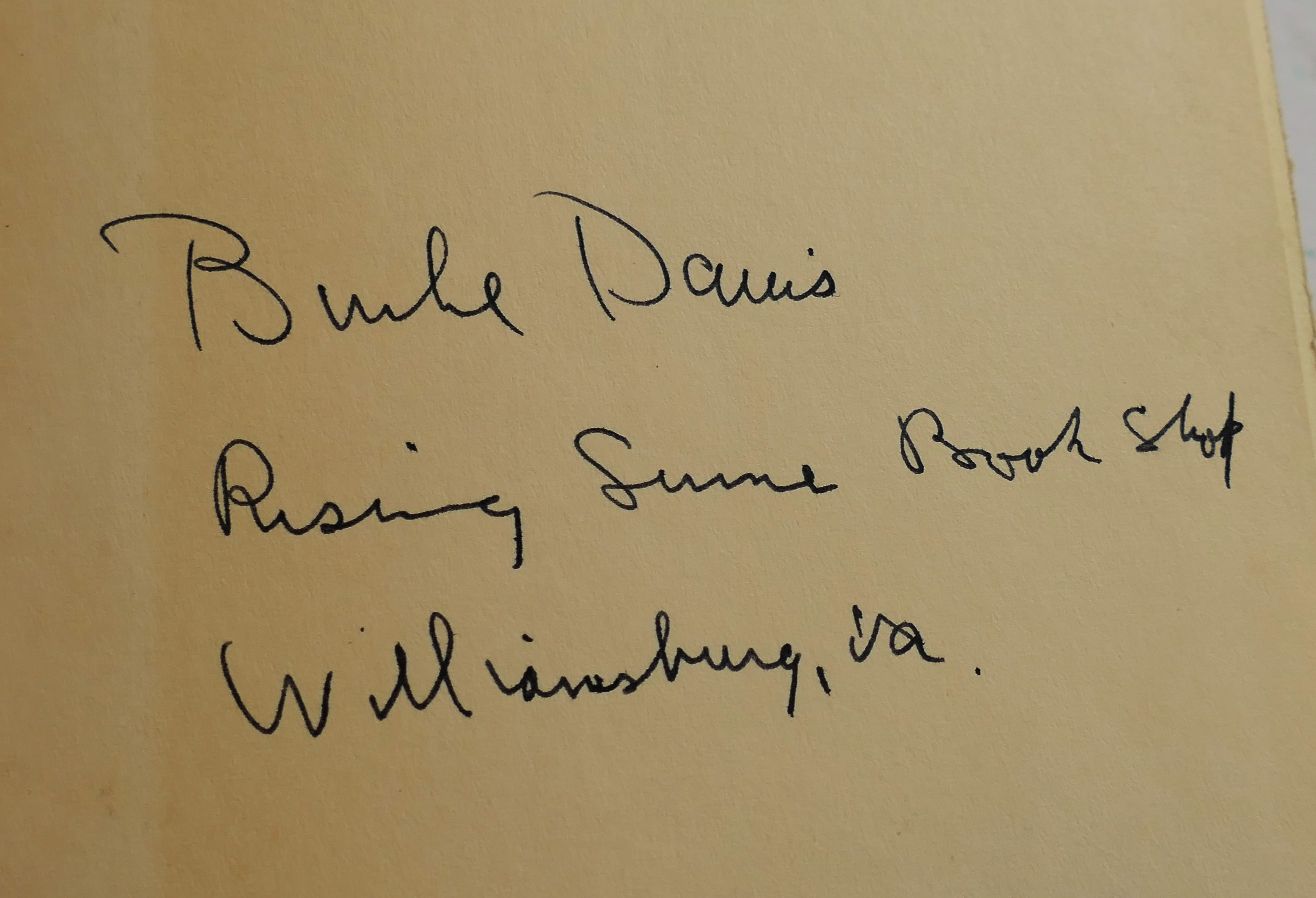 Burke Davis
Rising Sunne Book Shop
Williamsburg, Va.